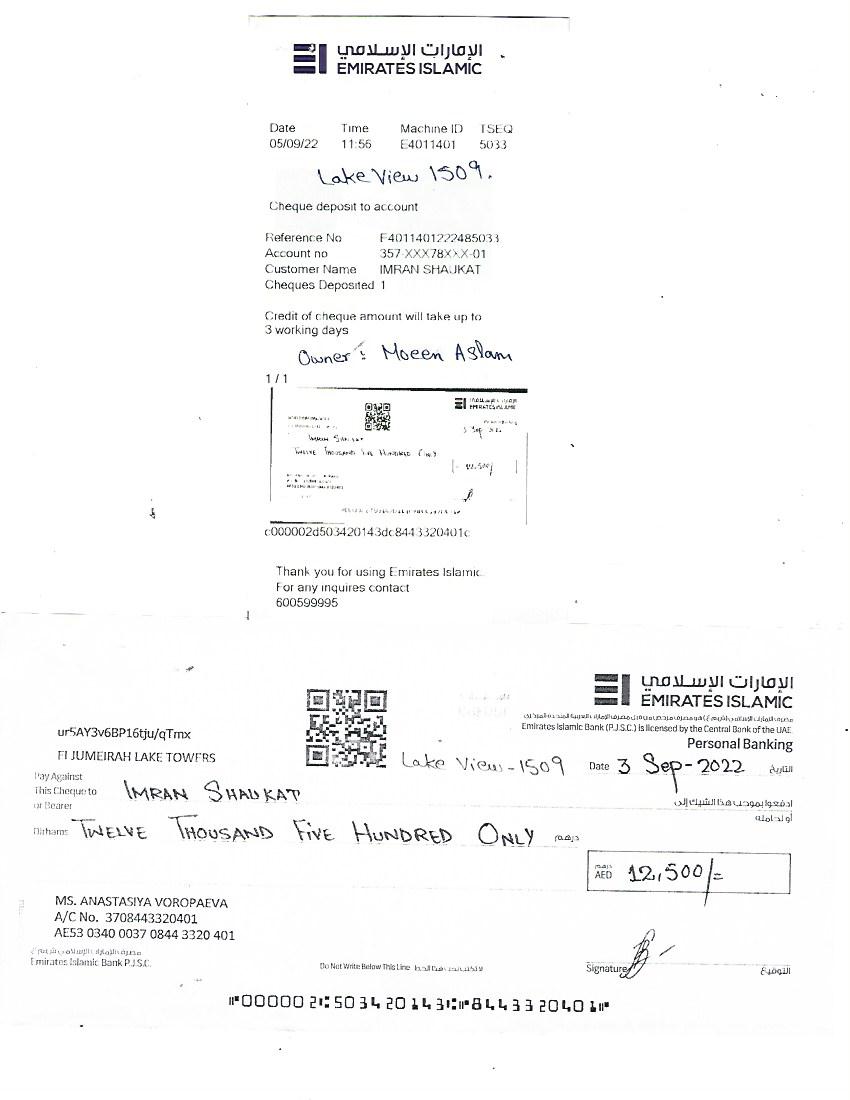 الإمارات الإسلامي
EMIRATES ISLAMIC
Date Time Machine ID TSEQ
05/09/22 11:56 E4011401 5033
Lake View 1509.
Cheque deposit to account
Reference No E4011401222485033
Account no 357-XXX78XXX-01
Customer Name IMRAN SHAUKAT
Cheques Deposited 1
Credit of cheque amount will take up to
3 working days
Owner: Moeen Aslam
1 / 1
EMIRATES ISLAMIC
3 Sep 2022
IMRAN SHAUKAT
TWELVE THOUSAND FIVE HUNDRED ONLY
12,500/
c000002d503420143dc8443320401c
Thank you for using Emirates Islamic.
For any inquires contact
600599995
الإمارات الإسلامي
EMIRATES ISLAMIC
Emirates Islamic Bank (P.J.S.C.) is licensed by the Central Bank of the UAE
Personal Banking
ur5AY3v6BP16tju/qTmx
EI JUMEIRAH LAKE TOWERS
Lake View - 1509 Date 3 Sep-2022 التاريخ
Pay Against
This Cheque to IMRAN SHAUKAT ادفعوا بموجب هذا الشيك إلى
or Bearer أو لحامله
Dirhams TWELVE THOUSAND FIVE HUNDRED ONLY درهم
درهم
AED 12,500/=
MS. ANASTASIYA VOROPAEVA
A/C No. 3708443320401
AE53 0340 0037 0844 3320 401
مصرف الإمارات الإسلامي ش.م.ع
Emirates Islamic Bank P.J.S.C.
Do Not Write Below This Line لا تكتب تحت هذا الخط
Signature التوقيع
⑈000002⑆503420143⑆⑈8443320401⑈